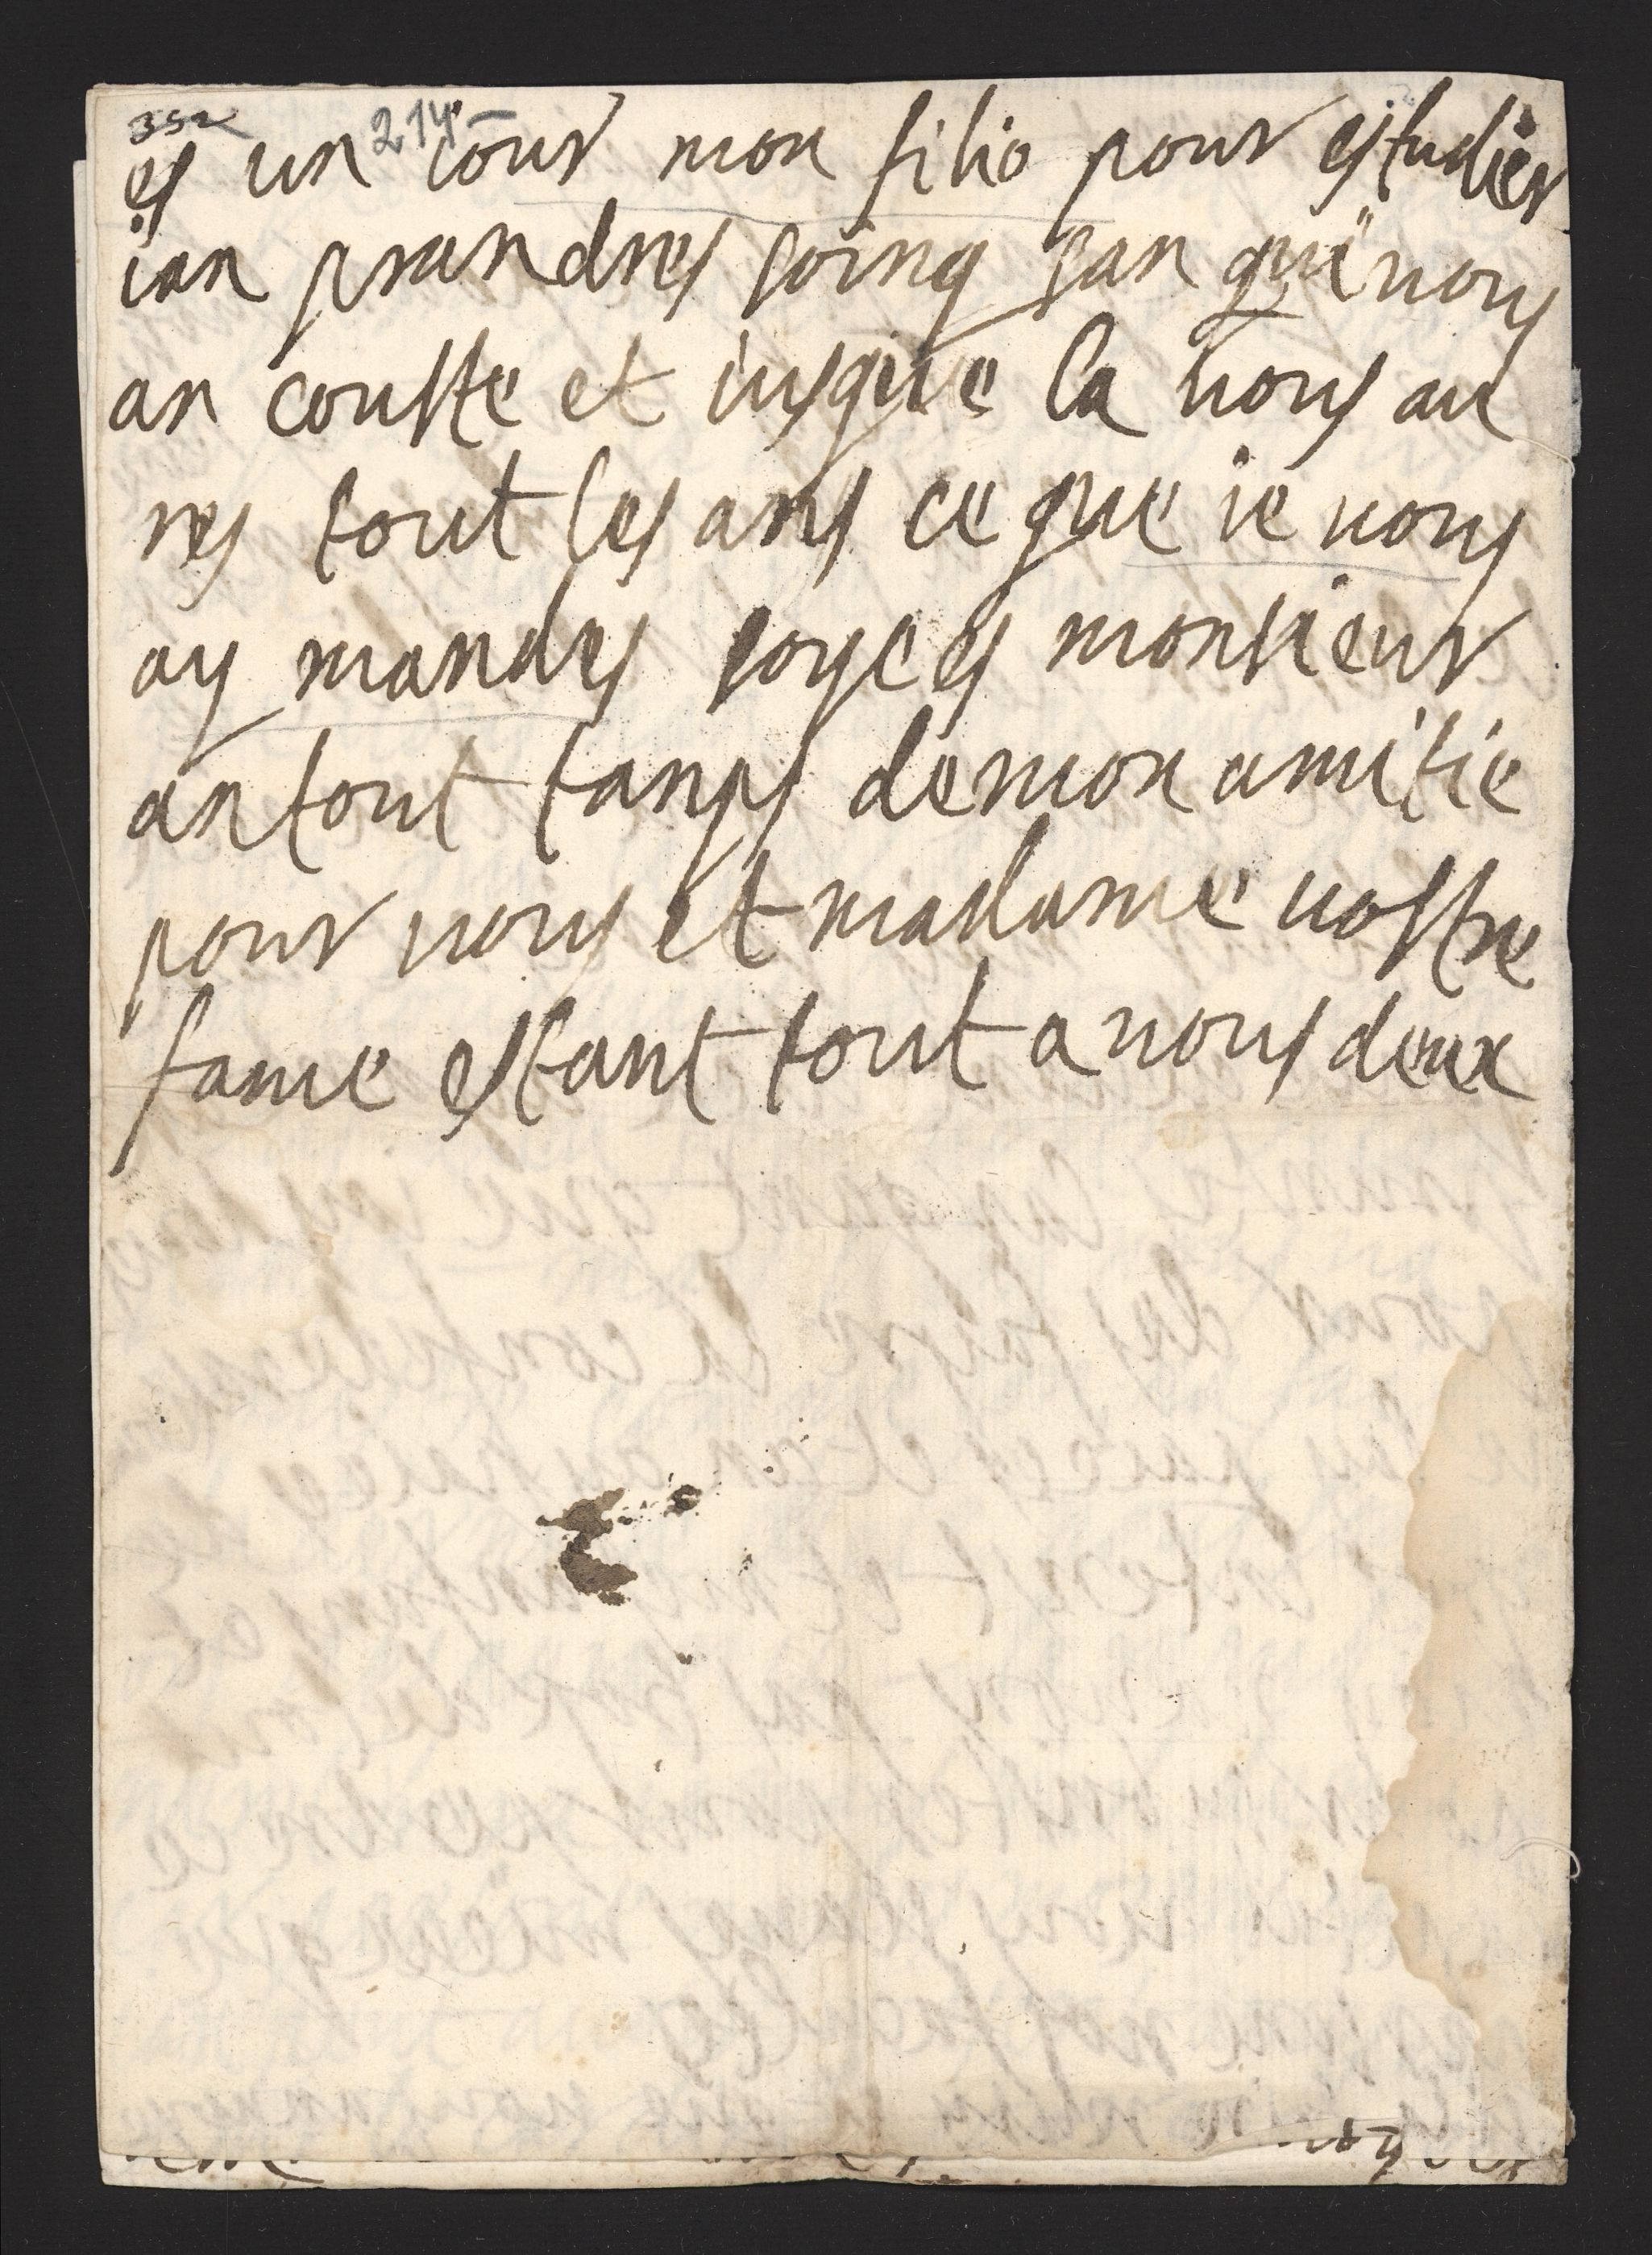 352 214
es un iour mon filio pour estudier
ian prandres soing san qui vous
an couste et iusque la vous au
res tout les ans ce que ie vous
ay mandes soyees monsieur
an tout tanps de mon amitie
pour vous et madame vostre
fame estant tout a vous deux